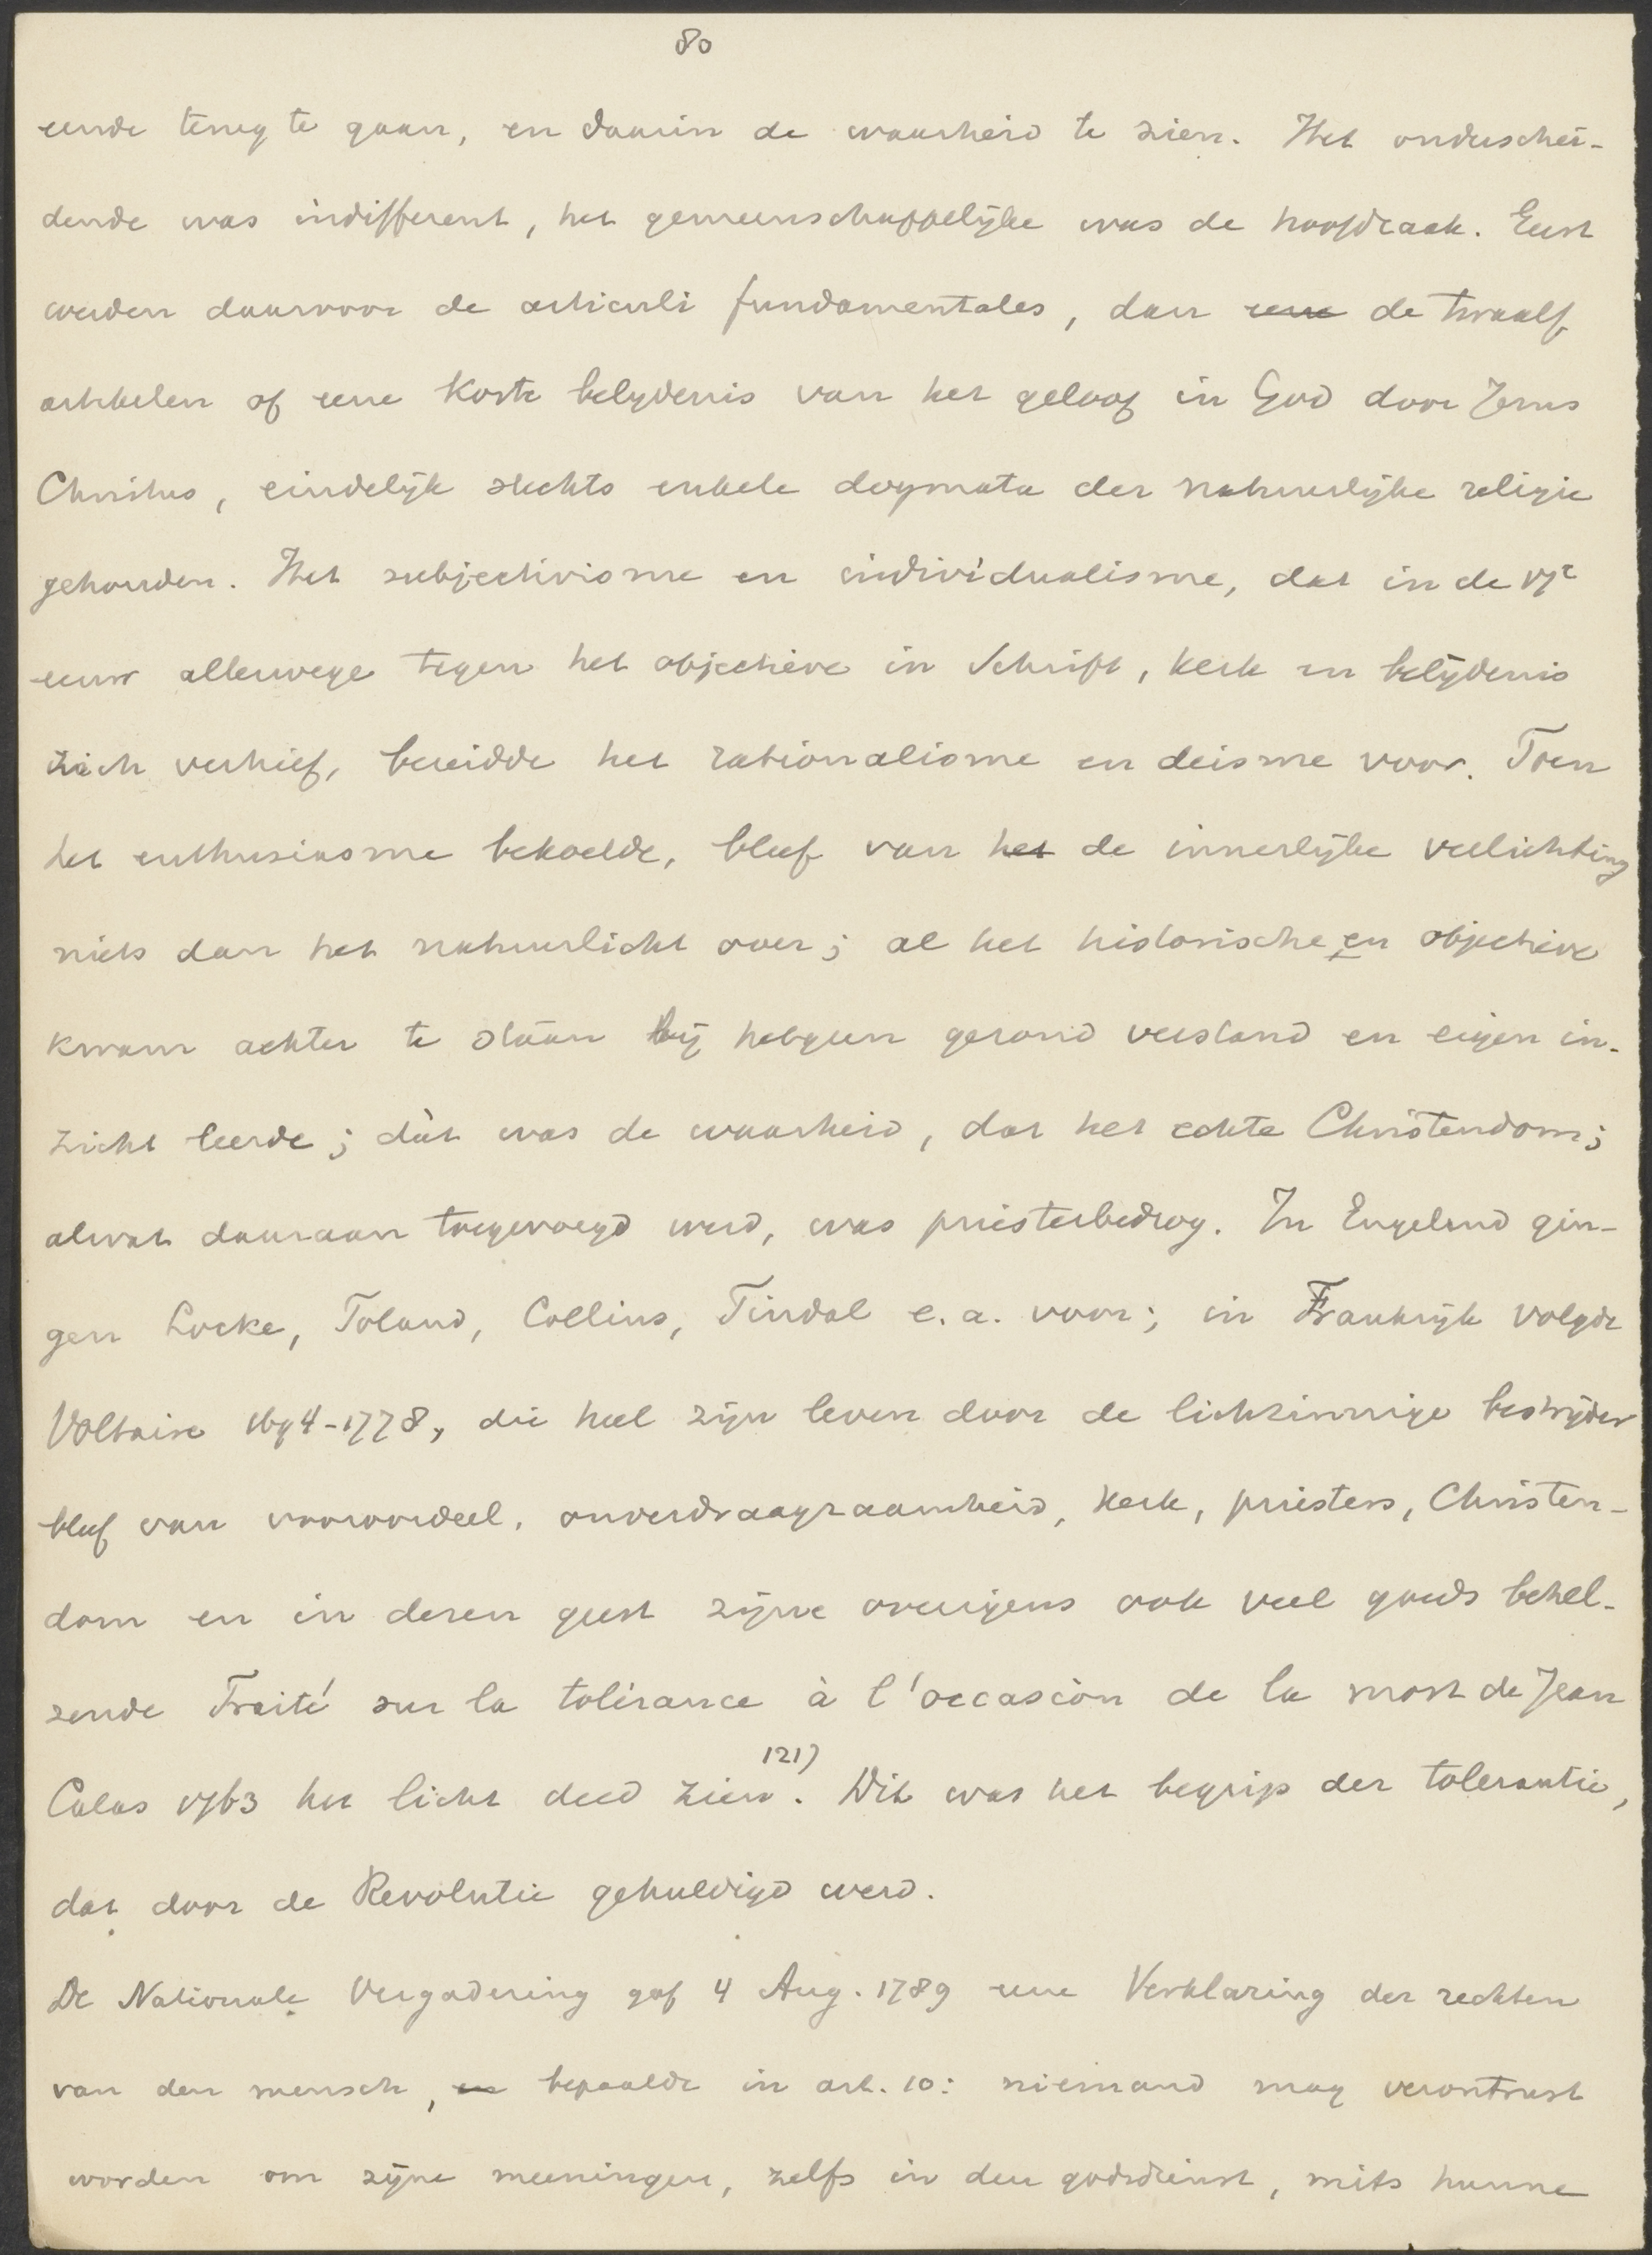 80
eende terug te gaan, en daarin de waarheid te zien. Het onderschei-
dende was indifferent, het gemeenschappelijke was de hoofdzaak. Eerst
werden daarvoor de articuli fundamentales, dan eene de twaalf
artikelen of eene korte belijdenis van het geloof in God door Jezus
Christus, eindelijk slechts enkele dogmata der natuurlijke religie
gehouden. Het subjectivisme en individualisme, dat in de 17e
eeuw allerwege tegen het objectieve in Schrift, kerk en belijdenis
zich verhief, bereidde het rationalisme en deisme voor. Toen
het enthusiasme bekoelde, bleef van het de innerlijke verlichting
niets dan het natuurlicht over; al het historische en objectieve
kwam achter te staan bij hetgeen gezond verstand en eigen in-
zicht leerde; dàt was de waarheid, dat het echte Christendom;
alwat daaraan toegevoegd werd, was priesterbedrog. In Engeland gin-
gen Locke, Toland, Collins, Tindal e.a. voor; in Frankrijk volgde
Voltaire 1694-1778, die heel zijn leven door de lichtzinnige bestrijder
bleef van vooroordeel, onverdraagzaamheid, kerk, priesters, Christen-
dom en in dezen geest zijne overigens ook veel goeds behel-
zende Traité sur la tolérance à l'occasion de la mort de Jean
Calas 1763 het licht deed zien. 121) Dit was het begrip der tolerantie,
dat door de Revolutie gehuldigd werd.
De Nationale Vergadering gaf 4 Aug. 1789 eene Verklaring der rechten
van den mensch, en bepaalde in art. 10: niemand mag verontrust
worden om zijne meeningen, zelfs in den godsdienst, mits hunne